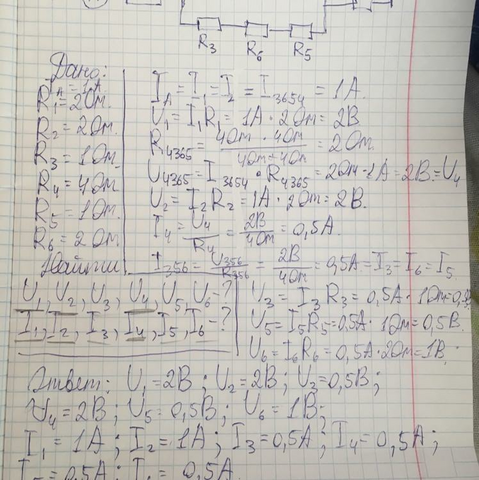 R₃ R₆ R₅
Дано:
I_A = 1A
R₁ = 2Ом.
R₂ = 2Ом.
R₃ = 1Ом.
R₄ = 4Ом.
R₅ = 1Ом.
R₆ = 2Ом.
Найти:
U₁, U₂, U₃, U₄, U₅, U₆ = ?
I₁, I₂, I₃, I₄, I₅, I₆ = ?
I_A = I₁ = I₂ = I₃₆₅₄ = 1A.
U₁ = I₁R₁ = 1A · 2Ом = 2В
R₄₃₆₅ = 4Ом · 4Ом / 4Ом + 4Ом = 2Ом.
U₄₃₆₅ = I₃₆₅₄ · R₄₃₆₅ = 2Ом · 1A = 2В = U₄
U₂ = I₂R₂ = 1A · 2Ом = 2В.
I₄ = U₄ / R₄ = 2В / 4Ом = 0,5A.
I₃₅₆ = U₃₅₆ / R₃₅₆ = 2В / 4Ом = 0,5A = I₃ = I₆ = I₅
U₃ = I₃R₃ = 0,5A · 1Ом = 0,5
U₅ = I₅R₅ = 0,5A · 1Ом = 0,5В.
U₆ = I₆R₆ = 0,5A · 2Ом = 1В.
Ответ: U₁ = 2В; U₂ = 2В; U₃ = 0,5В;
U₄ = 2В; U₅ = 0,5В; U₆ = 1В;
I₁ = 1A; I₂ = 1A; I₃ = 0,5A; I₄ = 0,5A;
0,5A; 0,5A.